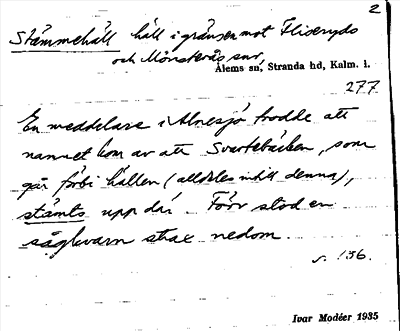 2
Stämmehäll häll i gränsen mot Fliseryds
och Mönsterås snr,
Ålems sn, Stranda hd, Kalm. l.
277
En meddelare i Alnesjö trodde att
namnet kom av att Svartebäcken, som
går förbi hällen (alldeles intill denna),
stämts upp där. Förr stod en
sågkvarn strax nedom.
s. 136.
Ivar Modéer 1935